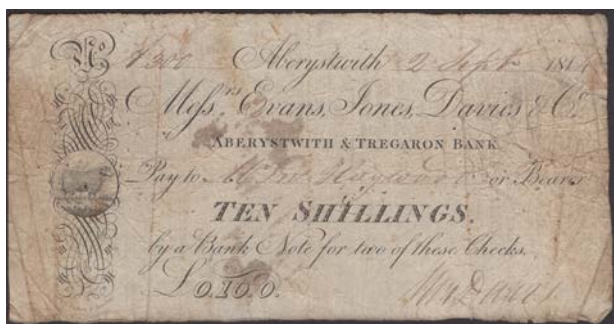 No 4300 Aberystwith 2 Sept 1814
Messrs Evans, Jones, Davies & Co
ABERYSTWITH & TREGARON BANK
Pay to or Bearer
TEN SHILLINGS.
by a Bank Note for two of these Checks.
£0.10.0.